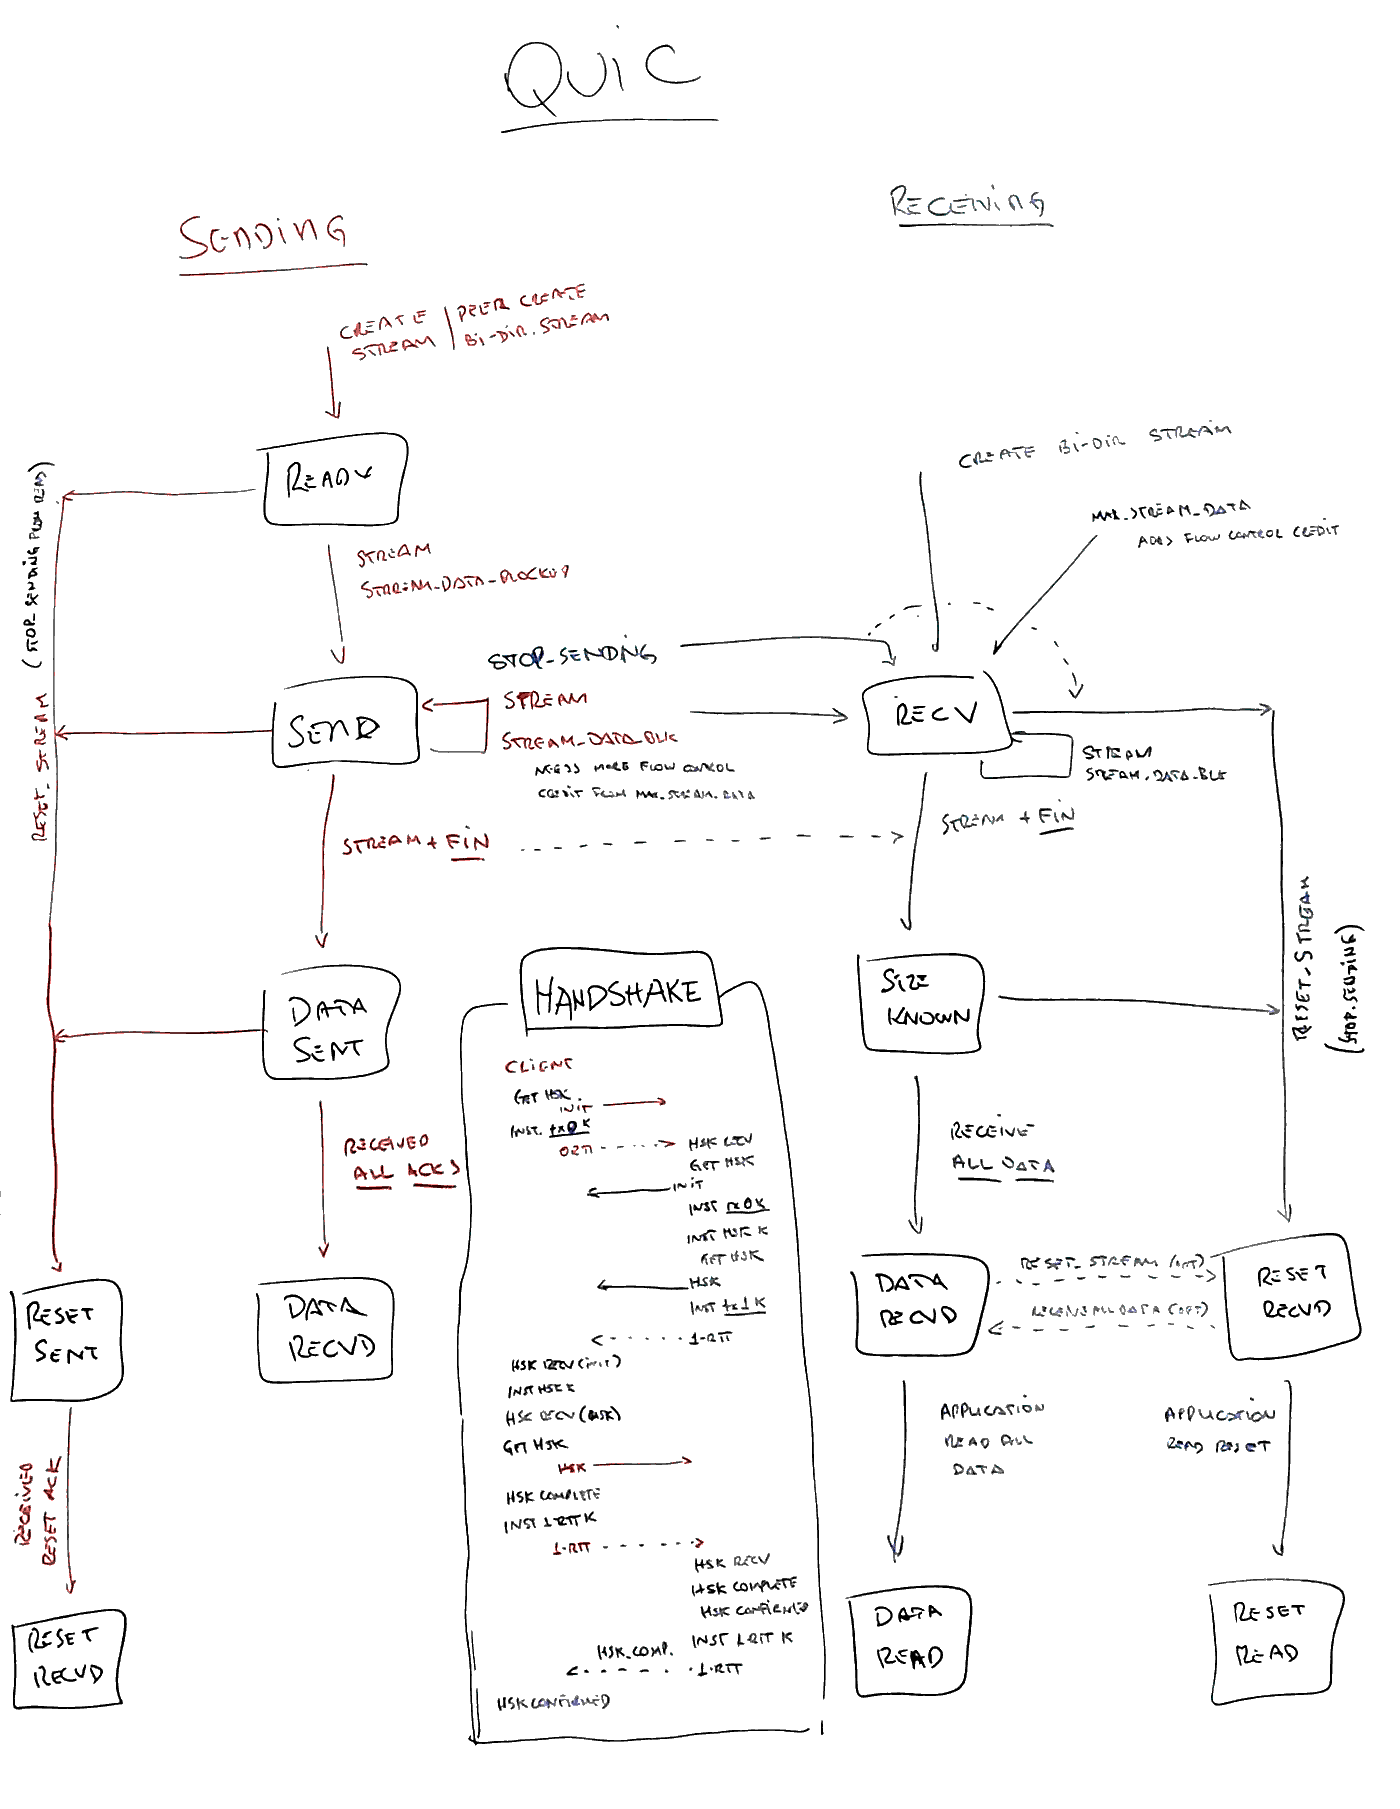 QUIC
SENDING
RECEIVING
CREATE
STREAM
PEER CREATE
BI-DIR. STREAM
READY
STREAM
STREAM_DATA_BLOCKED
RESET_STREAM (STOP SENDING FROM READ)
SEND
STOP_SENDING
STREAM
STREAM_DATA_BLK
NEEDS MORE FLOW CONTROL
CREDIT FROM MAX_STREAM_DATA
STREAM + FIN
DATA
SENT
RECEIVED
ALL ACKS
DATA
RECVD
RESET
SENT
RECEIVED
RESET ACK
RESET
RECVD
HANDSHAKE
CLIENT
GET HSK
INIT
INST. tx0 K
0RTT
HSK RECV
GET HSK
INIT
INST rx0K
INST HSK K
GET HSK
HSK
INST tx1 K
1-RTT
HSK RECV (INIT)
INST HSK K
HSK RECV (HSK)
GET HSK
HSK
HSK COMPLETE
INST 1-RTT K
1-RTT
HSK RECV
HSK COMPLETE
HSK CONFIRMED
INST 1-RTT K
HSK_COMP.
1-RTT
HSK CONFIRMED
CREATE BI-DIR STREAM
MAX_STREAM_DATA
ADDS FLOW CONTROL CREDIT
RECV
STREAM
STREAM_DATA_BLK
STREAM + FIN
SIZE
KNOWN
RESET_STREAM
(STOP_SENDING)
RECEIVE
ALL DATA
DATA
RECVD
RESET_STREAM (OPT)
RECEIVE ALL DATA (OPT)
RESET
RECVD
APPLICATION
READ ALL
DATA
APPLICATION
READ RESET
DATA
READ
RESET
READ